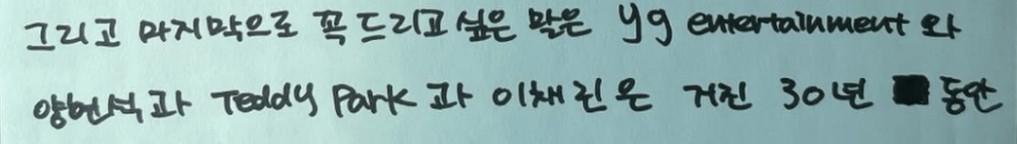 그리고 마지막으로 꼭 드리고 싶은 말은 yg entertainment 와
양현석과 Teddy Park 과 이채린은 거진 30년 동안